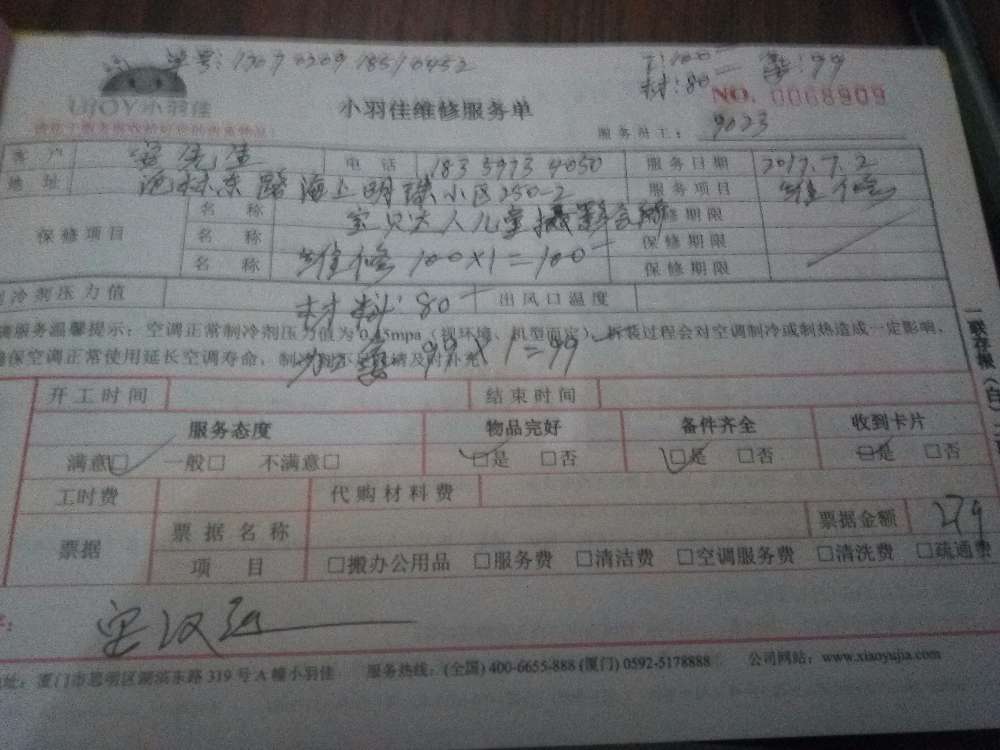 单号:1707020918510452
工:100
材:80 加氟:99
UJOY小羽佳
小羽佳维修服务单
NO. 0068909
服务班主: 9023
客户 电话 18359734050 服务日期 2017.7.2
地址 海上明珠小区250-2 服务项目 维修
保修项目 名称 宝贝夫人儿童摄影会所 保修期限
名称 保修期限
名称 维修 100×1=100 保修期限
制冷剂压力值 材料:80 出风口温度
服务温馨提示:空调正常制冷剂压力值为0.45mpa(视环境、机型而定)、拆装过程会对空调制冷或制热造成一定影响,
确保空调正常使用延长空调寿命,制冷剂不足敬请及时补充
加氟 99×1=99
一联存根(白)
开工时间 结束时间
服务态度 物品完好 备件齐全 收到卡片
满意□ 一般□ 不满意□ □是 □否 □是 □否 □是 □否
工时费 代购材料费
票据 票据名称 票据金额 279
项目 □搬办公用品 □服务费 □清洁费 □空调服务费 □清洗费 □疏通费
地址:厦门市思明区湖滨东路319号A幢小羽佳 服务热线:(全国)400-6655-888 (厦门)0592-5178888 公司网站:www.xiaoyujia.com